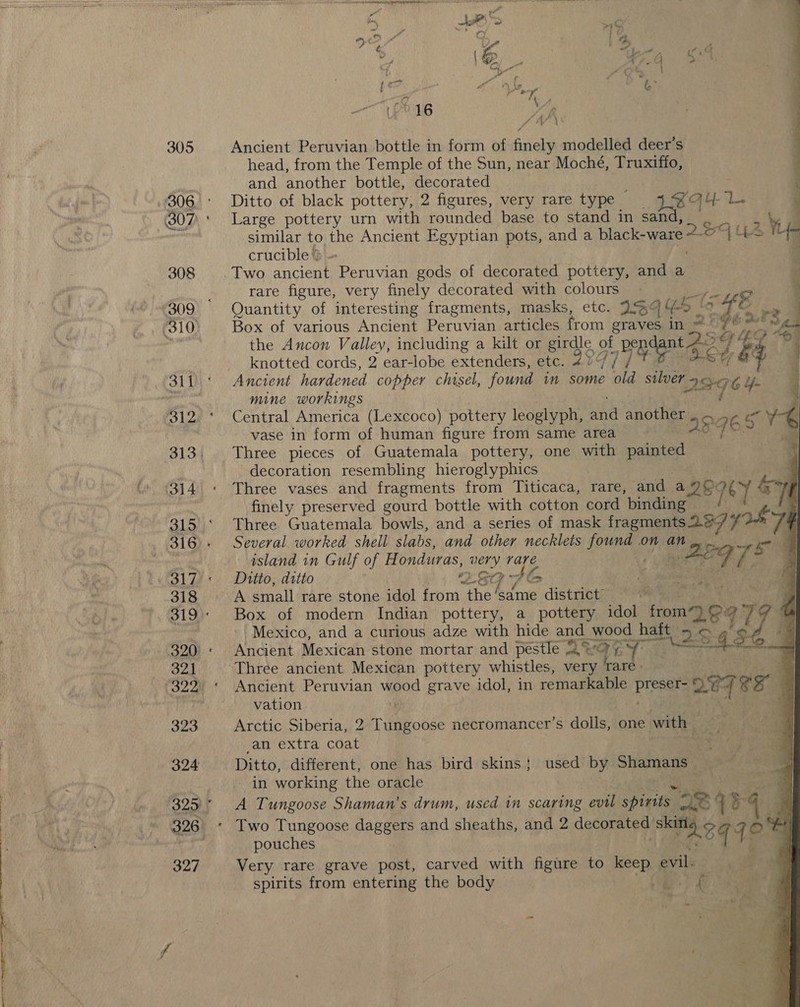 16
305 Ancient Peruvian bottle in form of finely modelled deer's
head, from the Temple of the Sun, near Moché, Truxiffo,
and another bottle, decorated
306 Ditto of black pottery, 2 figures, very rare type
307 Large pottery urn with rounded base to stand in sand,
similar to the Ancient Egyptian pots, and a black-ware
crucible
308 Two ancient Peruvian gods of decorated pottery, and a
rare figure, very finely decorated with colours
309 Quantity of interesting fragments, masks, etc.
310 Box of various Ancient Peruvian articles from graves in
the Ancon Valley, including a kilt or girdle of pendant
knotted cords, 2 ear-lobe extenders, etc.
311 Ancient hardened copper chisel, found in some old silver
mine workings
312 Central America (Lexcoco) pottery leoglyph, and another
vase in form of human figure from same area
313 Three pieces of Guatemala pottery, one with painted
decoration resembling hieroglyphics
314 Three vases and fragments from Titicaca, rare, and a
finely preserved gourd bottle with cotton cord binding
315 Three Guatemala bowls, and a series of mask fragments
316 Several worked shell slabs, and other necklets found on an
island in Gulf of Honduras, very rare
317 Ditto, ditto
318 A small rare stone idol from the same district
319 Box of modern Indian pottery, a pottery idol from
Mexico, and a curious adze with hide and wood haft
320 Ancient Mexican stone mortar and pestle
321 Three ancient Mexican pottery whistles, very rare
322 Ancient Peruvian wood grave idol, in remarkable preser-
vation
323 Arctic Siberia, 2 Tungoose necromancer's dolls, one with
an extra coat
324 Ditto, different, one has bird skins; used by Shamans
in working the oracle
325 A Tungoose Shaman's drum, used in scaring evil spirits
326 Two Tungoose daggers and sheaths, and 2 decorated skin
pouches
327 Very rare grave post, carved with figure to keep evil
spirits from entering the body